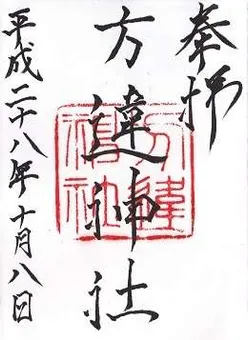 奉拝
方違神社
平成二十八年十月八日
方違
神社